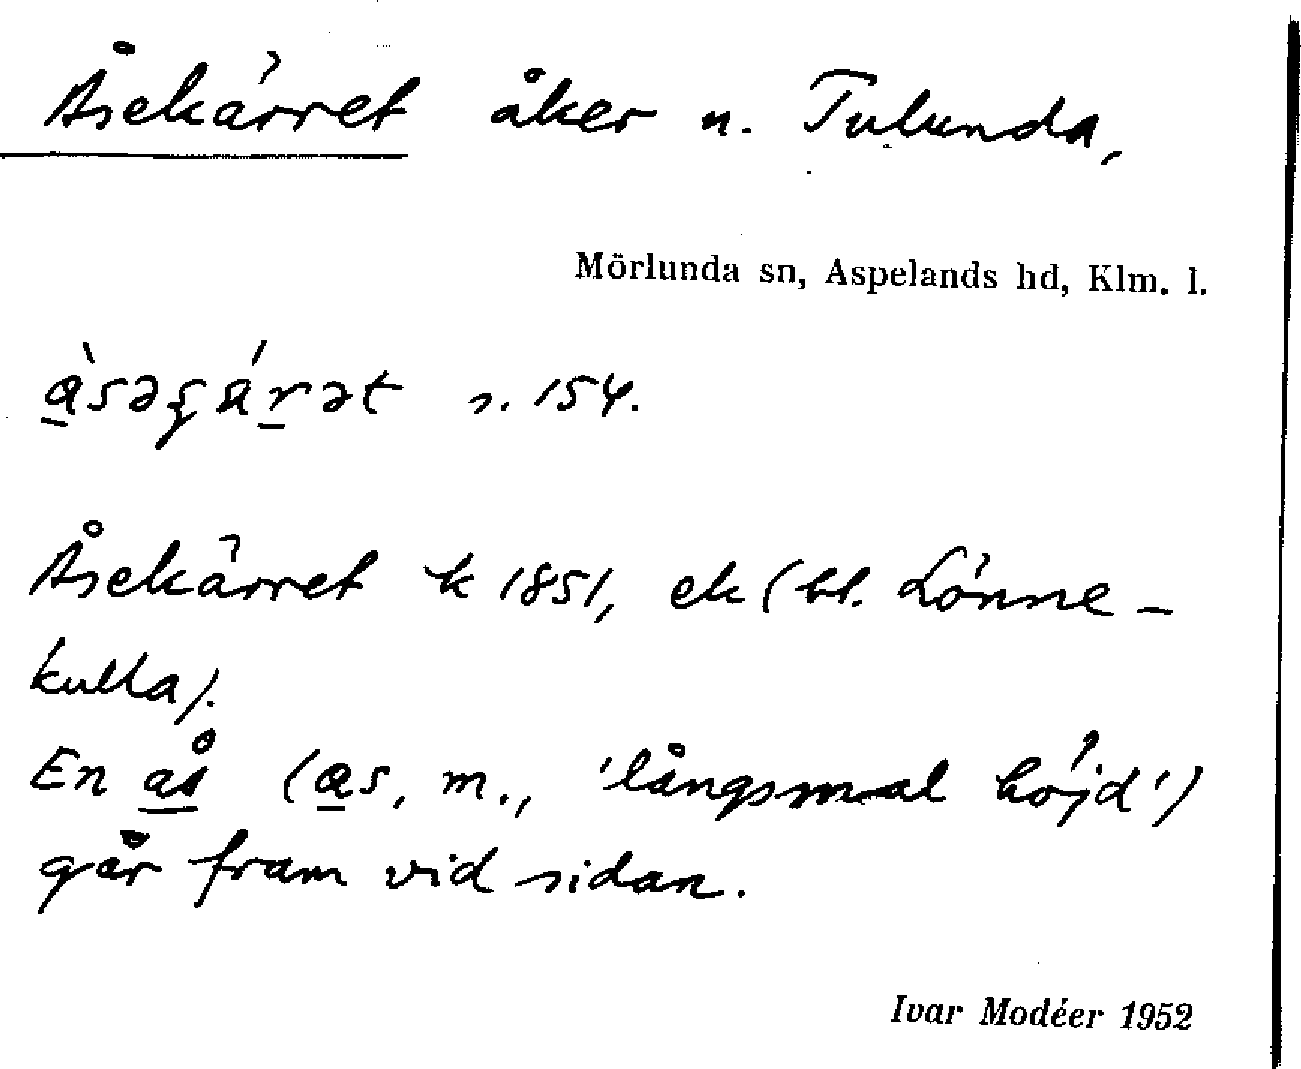 Åsekärret åker n. Tulunda,
Mörlunda sn, Aspelands hd, Klm. l.
à̱səʂá̱rət s. 154.
Åsekärret k 1851, ek (bl. Lönne-
kulla).
En ås (a̱s, m., 'långsmal höjd')
går fram vid sidan.
Ivar Modéer 1952